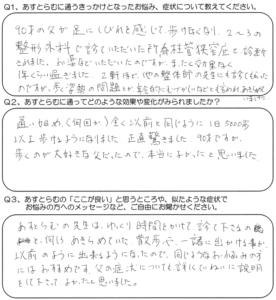 Q1、あすとらむに通うきっかけとなったお悩み、症状について教えてください。
90才の父が足にしびれを感じて、歩けなくなり、2〜3の
整形外科で診ていただいた所脊柱管狭窄症と診断
されました。お薬などいただいたのですが、まったく効果もなく
1年ぐらい過ぎました。2軒ほど、他の整体師の先生にも診て頂いた
のですが、
いました。
Q2、あすとらむに通ってどのような効果や変化がみられましたか？
通い始め(何回か)全く以前と同じように1日5000歩
以上歩けるようになりました。正直驚きました。90才ですが、
歩くのが大好きな父だったので、本当によかったと思いました
Q3、あすとらむの「ここが良い」と思うところや、似たような症状で
お悩みの方へのメッセージなど、ご自由にお聞かせください。
あすとらむの先生は、ゆっくり時間をかけて、診て下さる
と、何よりあきらめていた散歩や、一緒に出かける事が
以前のように出来るようになったので、同じようなお悩みの方
にはおすすめです。父の症状についても詳しくていねいに説明
をして下さってよかったと思いました。